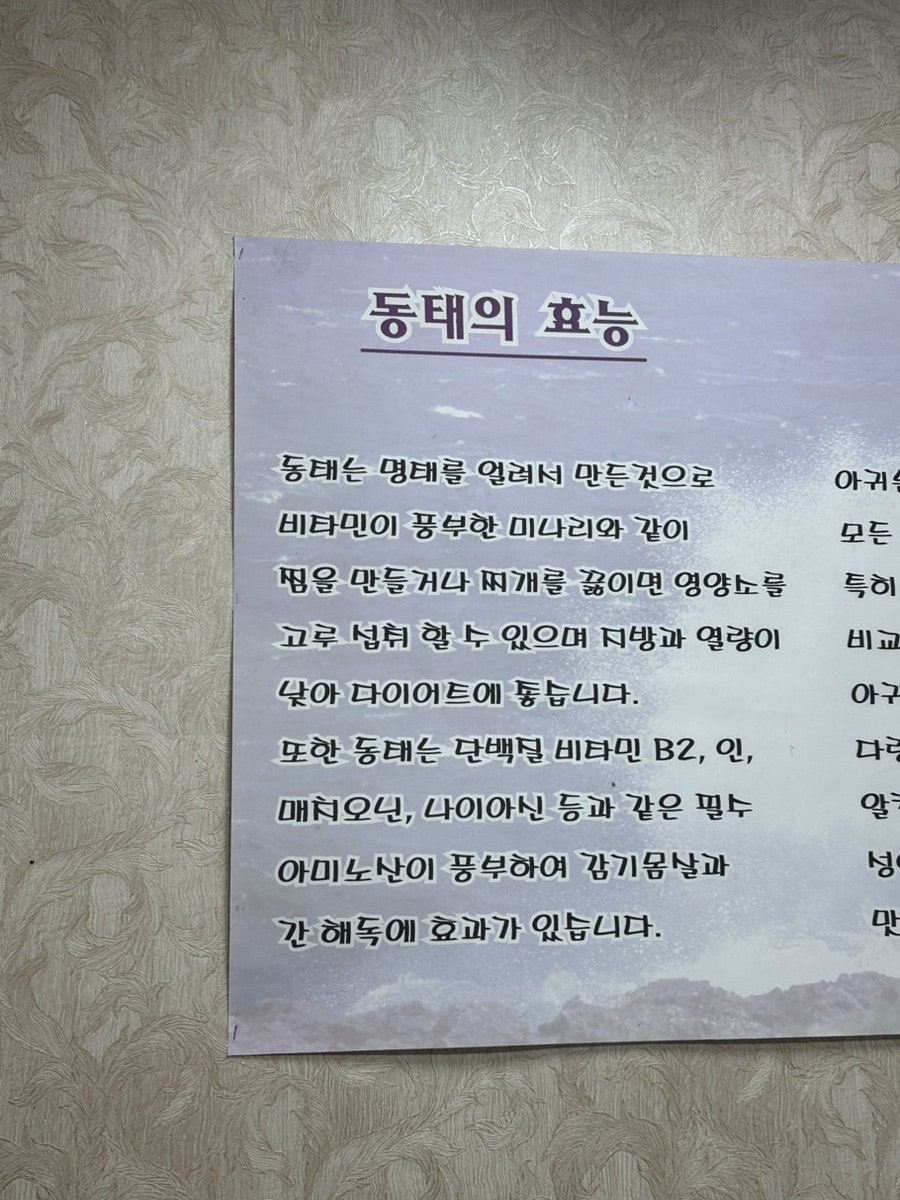 동태의 효능
동태는 명태를 얼려서 만든것으로
비타민이 풍부한 미나리와 같이
찜을 만들거나 찌개를 끓이면 영양소를
고루 섭취 할 수 있으며 지방과 열량이
낮아 다이어트에 좋습니다.
또한 동태는 단백질 비타민 B2, 인,
매치오닌, 나이아신 등과 같은 필수
아미노산이 풍부하여 감기몸살과
간 해독에 효과가 있습니다.
모든
특히